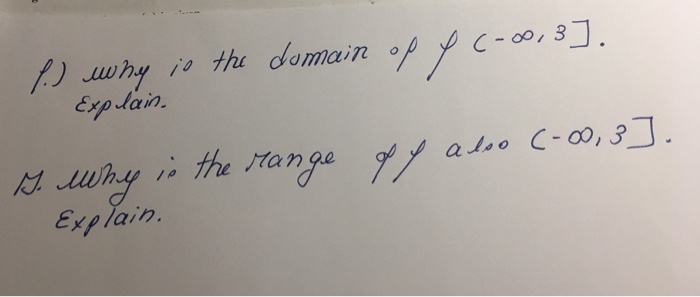 f.) why is the domain of f (-∞, 3].
Explain.
g. why is the range of f also (-∞, 3].
Explain.